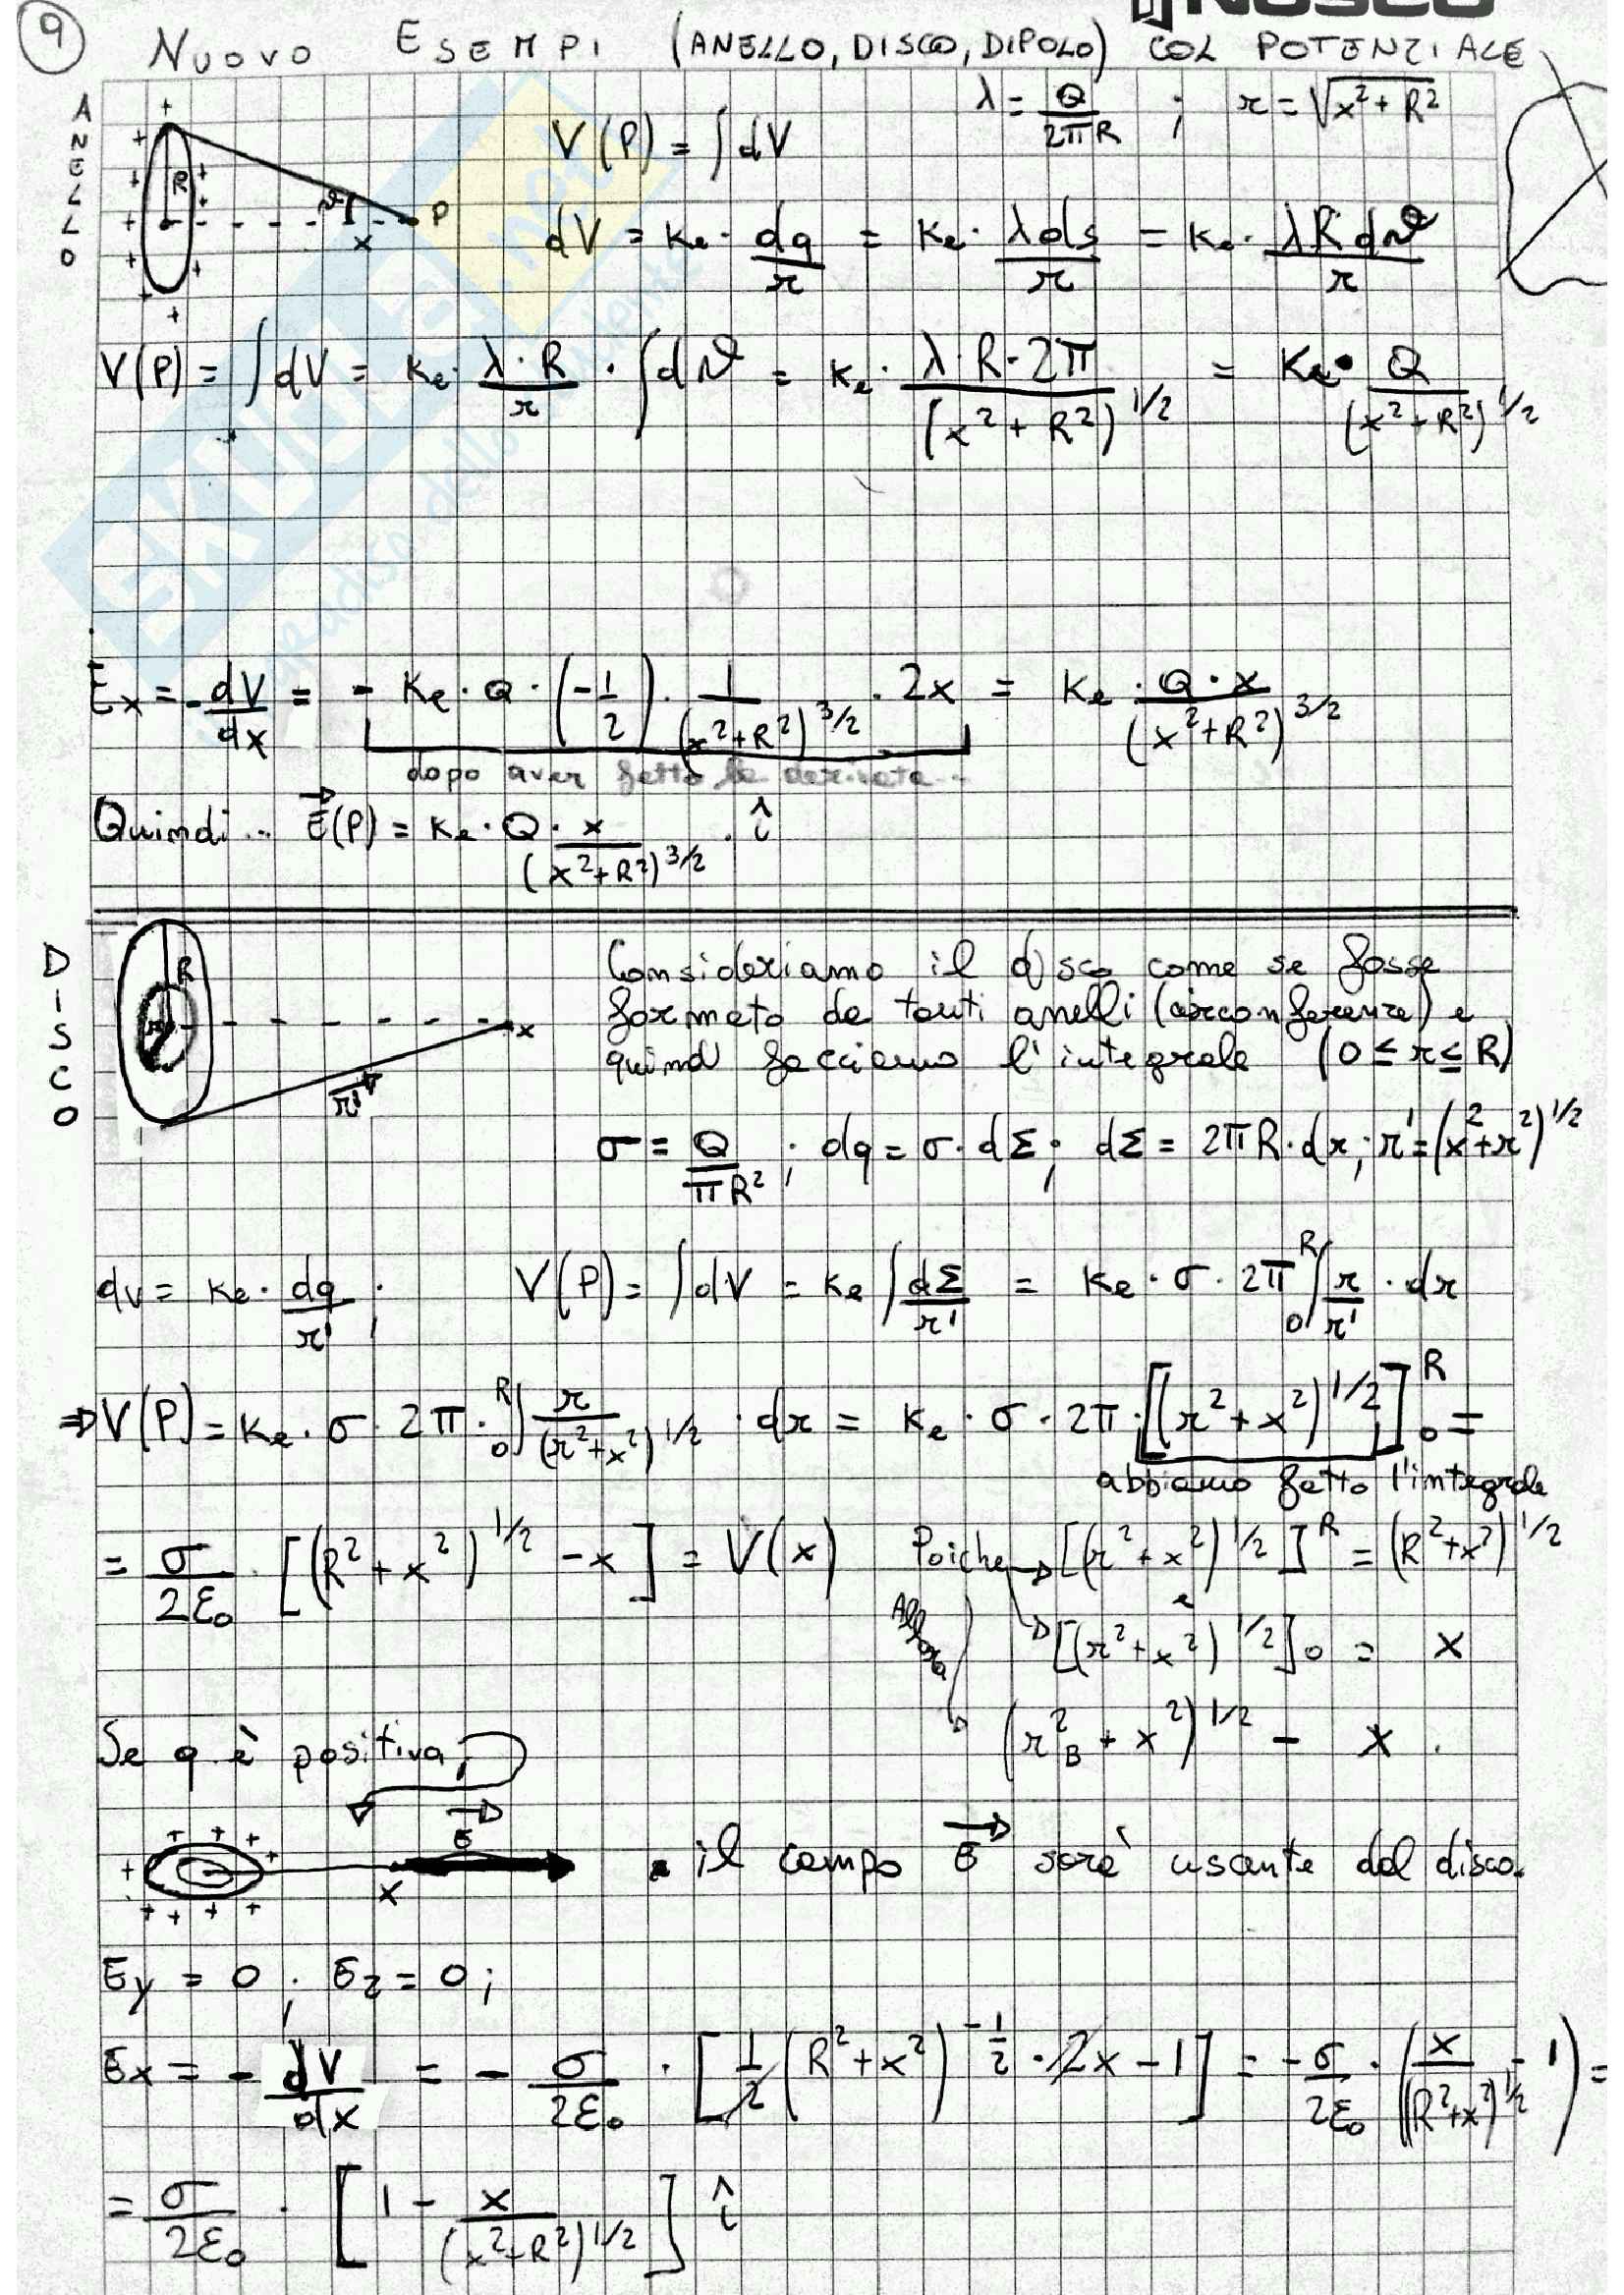 NOSCO
9 NUOVO ESEMPI (ANELLO, DISCO, DIPOLO) COL POTENZIALE
ANELLO
R x P
V(P) = ∫dV
λ = Q/2πR ; r = √(x²+R²)
dV = Ke · dq/r = Ke · λds/r = Ke · λRdϑ/r
V(P) = ∫dV = Ke · λ·R/r · ∫dϑ = Ke · λ·R·2π/(x²+R²)^1/2 = Ke · Q/(x²+R²)^1/2
Ex = -dV/dx = - Ke · Q · (-1/2) · 1/(x²+R²)^3/2 · 2x = Ke · Q·x/(x²+R²)^3/2
dopo aver fatto la derivata...
Quindi... E(P) = Ke · Q · x/(x²+R²)^3/2 · î
DISCO
R r x r'
Consideriamo il disco come se fosse
formato da tanti anelli (circonferenze) e
quindi facciamo l'integrale (0 ≤ r ≤ R)
σ = Q/πR² ; dq = σ · dΣ ; dΣ = 2πR · dr ; r' = (x²+r²)^1/2
dv = Ke · dq/r' ; V(P) = ∫dV = Ke ∫dΣ/r' = Ke · σ · 2π ₀∫ᴿ r/r' · dr
⇒ V(P) = Ke · σ · 2π · ₀∫ᴿ r/(r²+x²)^1/2 · dr = Ke · σ · 2π · [(r²+x²)^1/2]₀ᴿ =
abbiamo fatto l'integrale
= σ/2ε₀ · [(R²+x²)^1/2 - x] = V(x) Poiche → [(r²+x²)^1/2]ᴿ = (R²+x²)^1/2
e
Allora → [(r²+x²)^1/2]₀ = x
(r²B + x²)^1/2 - x .
Se q è positiva;
E
x
il campo E sarà uscente dal disco.
Ey = 0 ; Ez = 0 ;
Ex = - dV/dx = - σ/2ε₀ · [1/2 (R²+x²)^-1/2 · 2x - 1] = - σ/2ε₀ · (x/(R²+x²)^1/2 - 1) =
= σ/2ε₀ · [1 - x/(x²+R²)^1/2] î